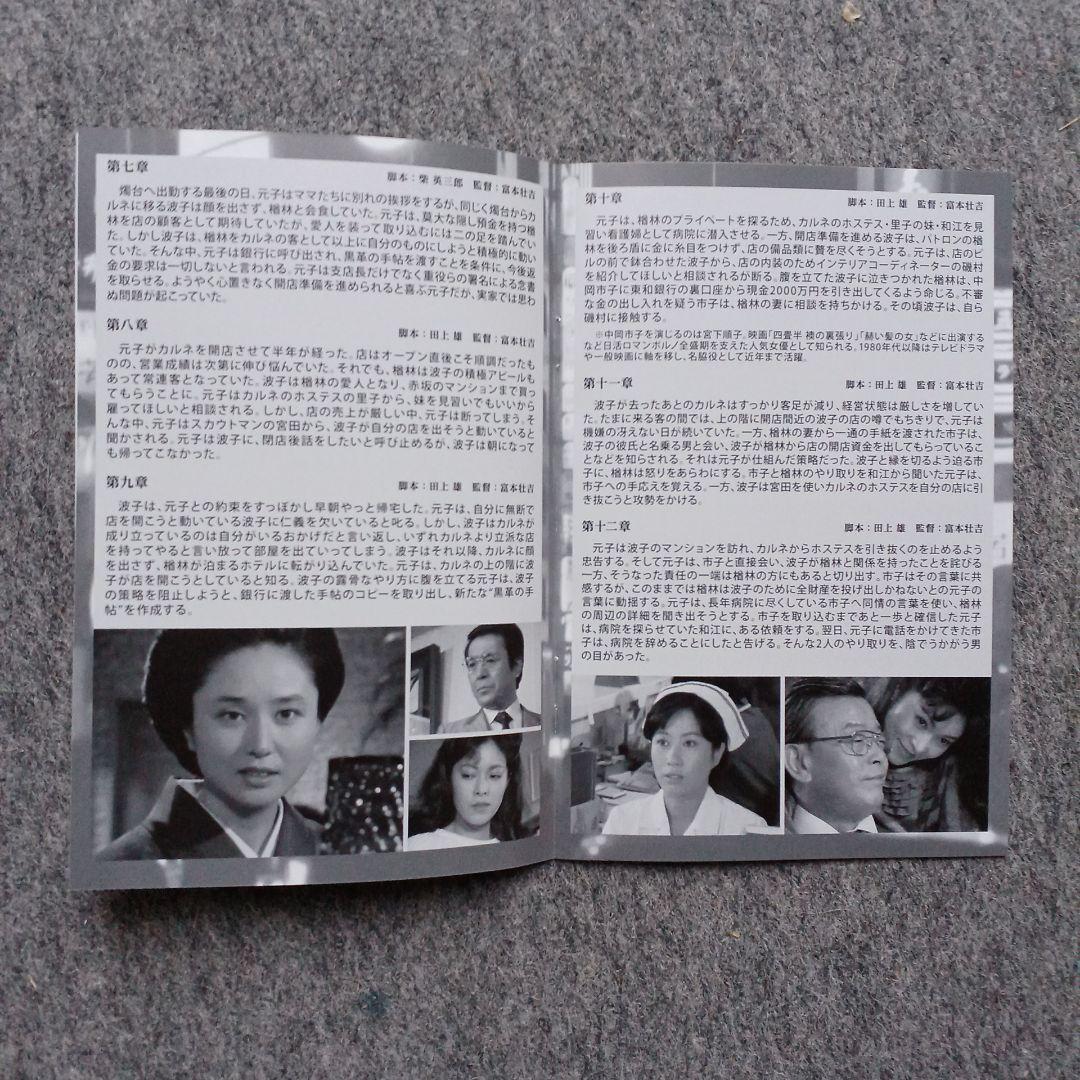 第七章
脚本：柴 英三郎　監督：富本壮吉
燭台へ出勤する最後の日、元子はママたちに別れの挨拶をするが、同じく燭台からカ
ルネに移る波子は顔を出さず、楢林と会食していた。元子は、莫大な隠し預金を持つ楢
林を店の顧客として期待していたが、愛人を装って取り込むには二の足を踏んでい
た。しかし波子は、楢林をカルネの客として以上に自分のものにしようと積極的に動い
ていた。そんな中、元子は銀行に呼び出され、黒革の手帖を渡すことを条件に、今後返
金の要求は一切しないと言われる。元子は支店長だけでなく重役らの署名による念書
を取らせる。ようやく心置きなく開店準備を進められると喜ぶ元子だが、実家では思わ
ぬ問題が起こっていた。
第八章
脚本：田上 雄　監督：富本壮吉
元子がカルネを開店させて半年が経った。店はオープン直後こそ順調だったも
のの、営業成績は次第に伸び悩んでいた。それでも、楢林は波子の積極アピールも
あって常連客となっていた。波子は楢林の愛人となり、赤坂のマンションまで買っ
てもらうことに。元子はカルネのホステスの里子から、妹を見習いでもいいから
雇ってほしいと相談される。しかし、店の売上が厳しい中、元子は断ってしまう。そ
んな中、元子はスカウトマンの宮田から、波子が自分の店を出そうと動いていると
聞かされる。元子は波子に、閉店後話をしたいと呼び止めるが、波子は朝になって
も帰ってこなかった。
第九章
脚本：田上 雄　監督：富本壮吉
波子は、元子との約束をすっぽかし早朝やっと帰宅した。元子は、自分に無断で
店を開こうと動いている波子に仁義を欠いていると叱る。しかし、波子はカルネが
成り立っているのは自分がいるおかげだと言い返し、いずれカルネより立派な店
を持ってやると言い放って部屋を出ていってしまう。波子はそれ以降、カルネに顔
を出さず、楢林が泊まるホテルに転がり込んでいた。元子は、カルネの上の階に波子
が店を開こうとしていると知る。波子の露骨なやり方に腹を立てる元子は、波子
の策略を阻止しようと、銀行に渡した手帖のコピーを取り出し、新たな“黒革の手
帖”を作成する。
第十章
脚本：田上 雄　監督：富本壮吉
元子は、楢林のプライベートを探るため、カルネのホステス・里子の妹・和江を見
習い看護婦として病院に潜入させる。一方、開店準備を進める波子は、パトロンの楢
林を後ろ盾に金に糸目をつけず、店の備品類に贅を尽くそうとする。元子は、店のビ
ルの前で鉢合わせた波子から、店の内装のためインテリアコーディネーターの磯村
を紹介してほしいと相談されるが断る。腹を立てた波子に泣きつかれた楢林は、中
岡市子に東和銀行の裏口座から現金2000万円を引き出してくるよう命じる。不審
な金の出し入れを疑う市子は、楢林の妻に相談を持ちかける。その頃波子は、自ら
磯村に接触する。
※中岡市子を演じるのは宮下順子。映画「四畳半 襖の裏張り」「赫い髪の女」などに出演する
など日活ロマンポルノ全盛期を支えた人気女優として知られる。1980年代以降はテレビドラマ
や一般映画に軸を移し、名脇役として近年まで活躍。
第十一章
脚本：田上 雄　監督：富本壮吉
波子が去ったあとのカルネはすっかり客足が減り、経営状態は厳しさを増してい
た。たまに来る客の間では、上の階に開店間近の波子の店の噂でもちきりで、元子は
機嫌の冴えない日が続いていた。一方、楢林の妻から一通の手紙を渡された市子は、
波子の彼氏と名乗る男と会い、波子が楢林から店の開店資金を出してもらっているこ
となどを知らされる。それは元子が仕組んだ策略だった。波子と縁を切るよう迫る市
子に、楢林は怒りをあらわにする。市子と楢林のやり取りを和江から聞いた元子は、
市子への手応えを覚える。一方、波子は宮田を使いカルネのホステスを自分の店に引
き抜こうと攻勢をかける。
第十二章
脚本：田上 雄　監督：富本壮吉
元子は波子のマンションを訪れ、カルネからホステスを引き抜くのを止めるよう
忠告する。そして元子は、市子と直接会い、波子が楢林と関係を持ったことを詫びる
一方、そうなった責任の一端は楢林の方にもあると切り出す。市子はその言葉に共
感するが、このままでは楢林は波子のために全財産を投げ出しかねないとの元子の
言葉に動揺する。元子は、長年病院に尽くしている市子へ同情の言葉を使い、楢林
の周辺の詳細を聞き出そうとする。市子を取り込むまであと一歩と確信した元子
は、病院を探らせていた和江に、ある依頼をする。翌日、元子に電話をかけてきた市
子は、病院を辞めることにしたと告げる。そんな2人のやり取りを、陰でうかがう男
の目があった。